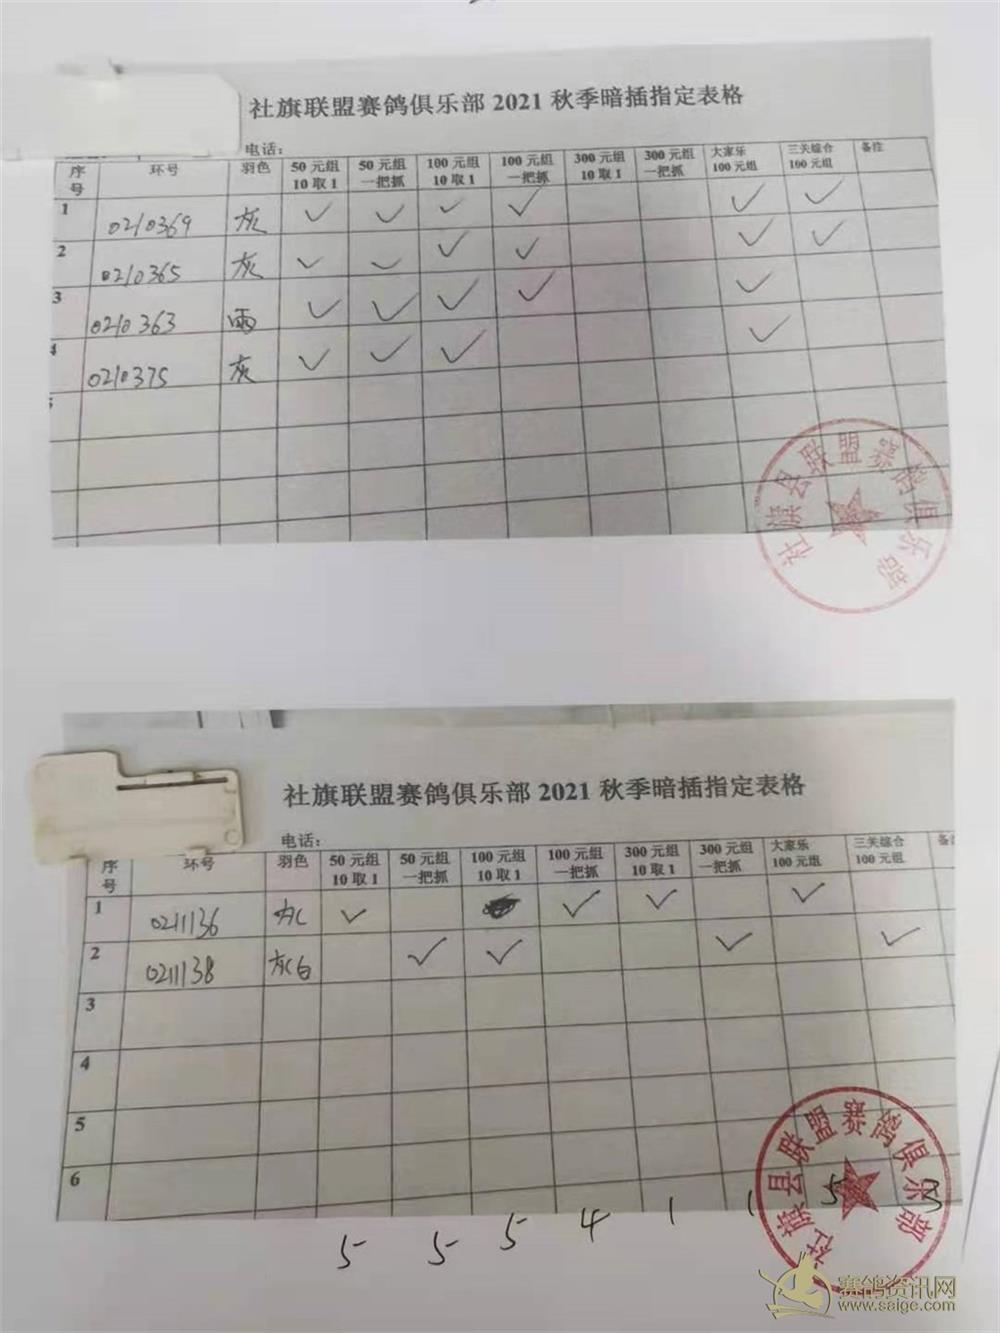 社旗联盟赛鸽俱乐部 2021 秋季暗插指定表格
电话：
序号 环号 羽色 50 元组 10 取 1 50 元组 一把抓 100 元组 10 取 1 100 元组 一把抓 300 元组 10 取 1 300 元组 一把抓 大家乐 100 元组 三关综合 100 元组 备注
1 0210369 灰 ✓ ✓ ✓ ✓ ✓ ✓
2 0210365 灰 ✓ ✓ ✓ ✓ ✓ ✓
3 0210363 雨 ✓ ✓ ✓ ✓ ✓
4 0210375 灰 ✓ ✓ ✓ ✓
5
社旗县联盟赛鸽俱乐部
社旗联盟赛鸽俱乐部 2021 秋季暗插指定表格
电话：
序号 环号 羽色 50 元组 10 取 1 50 元组 一把抓 100 元组 10 取 1 100 元组 一把抓 300 元组 10 取 1 300 元组 一把抓 大家乐 100 元组 三关综合 100 元组 备
1 0211136 灰 ✓ ✓ ✓ ✓
2 0211138 灰白 ✓ ✓ ✓ ✓
3
4
5
6
5 5 5 4 1 1 5 3
社旗县联盟赛鸽俱乐部
赛鸽资讯网
www.saige.com